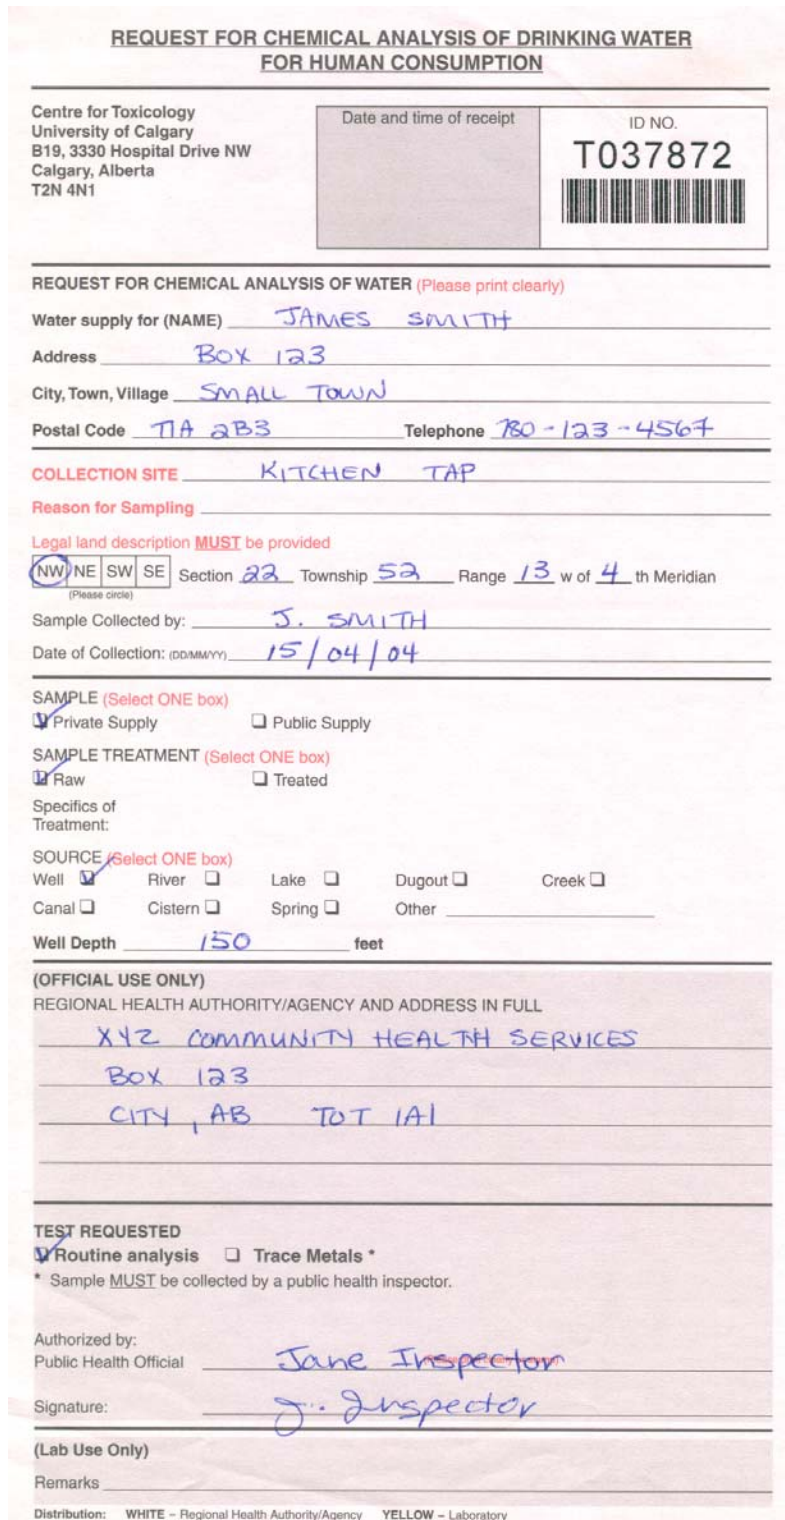 REQUEST FOR CHEMICAL ANALYSIS OF DRINKING WATER
FOR HUMAN CONSUMPTION
Centre for Toxicology
University of Calgary
B19, 3330 Hospital Drive NW
Calgary, Alberta
T2N 4N1
Date and time of receipt
ID NO.
T037872
REQUEST FOR CHEMICAL ANALYSIS OF WATER (Please print clearly)
Water supply for (NAME) JAMES SMITH
Address BOX 123
City, Town, Village SMALL TOWN
Postal Code T1A 2B3 Telephone 780-123-4567
COLLECTION SITE KITCHEN TAP
Reason for Sampling
Legal land description MUST be provided
NW NE SW SE Section 22 Township 52 Range 13 w of 4 th Meridian
(Please circle)
Sample Collected by: J. SMITH
Date of Collection: (DD/MM/YY) 15/04/04
SAMPLE (Select ONE box)
Private Supply Public Supply
SAMPLE TREATMENT (Select ONE box)
Raw Treated
Specifics of
Treatment:
SOURCE (Select ONE box)
Well River Lake Dugout Creek
Canal Cistern Spring Other
Well Depth 150 feet
(OFFICIAL USE ONLY)
REGIONAL HEALTH AUTHORITY/AGENCY AND ADDRESS IN FULL
XYZ COMMUNITY HEALTH SERVICES
BOX 123
CITY, AB T0T 1A1
TEST REQUESTED
Routine analysis Trace Metals *
* Sample MUST be collected by a public health inspector.
Authorized by:
Public Health Official Jane Inspector
Signature: J. Inspector
(Lab Use Only)
Remarks
Distribution: WHITE – Regional Health Authority/Agency YELLOW – Laboratory